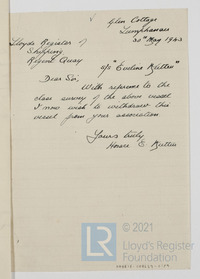 Glen Cottage
Lumphanan
30th May 1943
Lloyds Register of
Shipping
Regent Quay
M/S "Eveline Rutter"
Dear Sir,
With reference to the
class survey of the above vessel
I now wish to withdraw this
vessel from your association
Yours truly
Horace E. Rutter
© 2021
LR
Lloyd's Register
Foundation